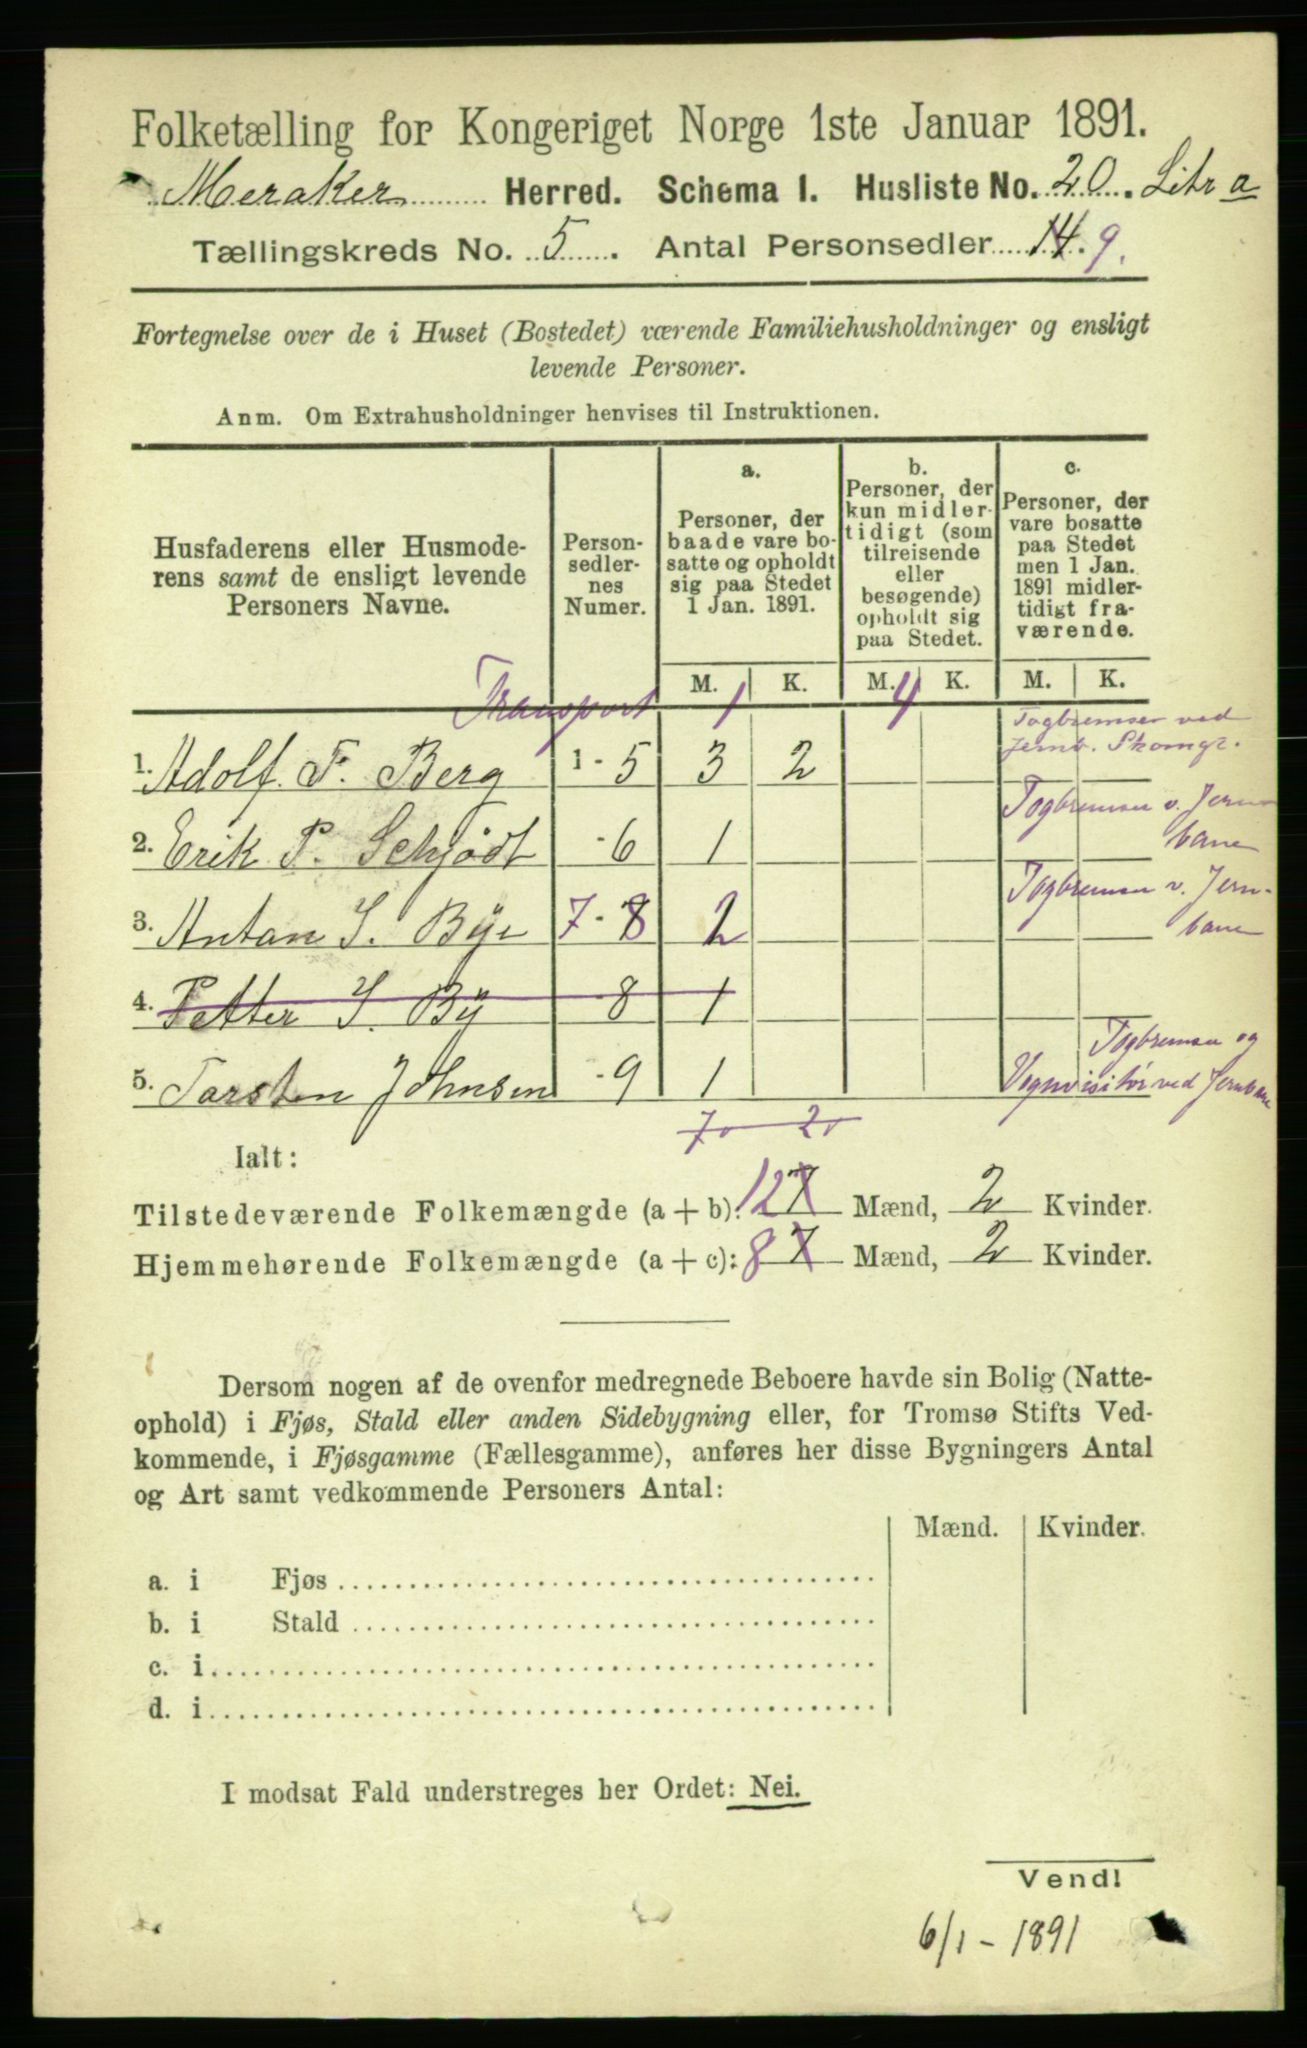 Folketælling for Kongeriget Norge 1ste Januar 1891.
Meraker Herred. Schema 1. Husliste No. 20. Litr a
Tællingskreds No. 5. Antal Personsedler 14. 9.
Fortegnelse over de i Huset (Bostedet) værende Familiehusholdninger og ensligt
levende Personer.
Anm. Om Extrahusholdninger henvises til Instruktionen.
Husfaderens eller Husmode-
rens samt de ensligt levende
Personers Navne.
Person-
sedler-
nes
Numer.
a.
Personer, der
baade vare bo-
satte og opholdt
sig paa Stedet
1 Jan. 1891.
b.
Personer, der
kun midler-
tidigt (som
tilreisende
eller
besøgende)
opholdt sig
paa Stedet.
c.
Personer, der
vare bosatte
paa Stedet
men 1 Jan.
1891 midler-
tidigt fra-
værende.
M. K. M. K. M. K.
Transport 1 4
1. Adolf. F. Berg 1 - 5 3 2 Togbremser ved
Jernb.
2. Erik P. Schjödt - 6 1 Togbremser v. Jern-
bane
3. Antan J. Bye 7 - 8 2 Togbremser v. Jern-
bane
4. Petter J. By - 8 1
5. Tarsten Johnsen - 9 1 Togbremser og
Vognvisitör ved Jernbane
7 2
Ialt:
Tilstedeværende Folkemængde (a + b): 12 7 Mænd, 2 Kvinder.
Hjemmehørende Folkemængde (a + c): 8 7 Mænd, 2 Kvinder.
Dersom nogen af de ovenfor medregnede Beboere havde sin Bolig (Natte-
ophold) i Fjøs, Stald eller anden Sidebygning eller, for Tromsø Stifts Ved-
kommende, i Fjøsgamme (Fællesgamme), anføres her disse Bygningers Antal
og Art samt vedkommende Personers Antal:
Mænd. Kvinder.
a. i Fjøs
b. i Stald
c. i
d. i
I modsat Fald understreges her Ordet: Nei.
Vend!
6/1 - 1891